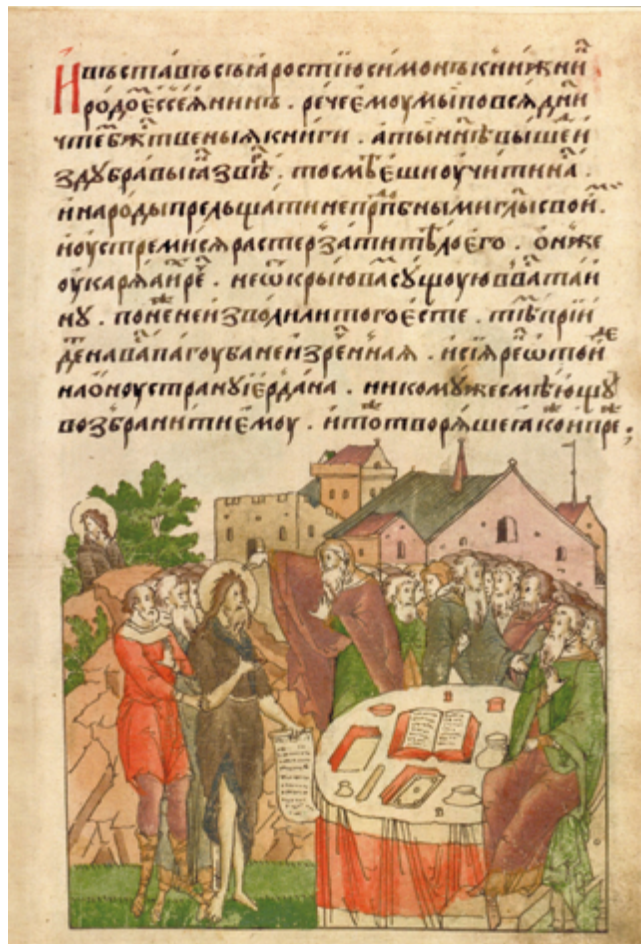 И въставъ съ ꙗростїю симонъ книжни
родо есеꙗнинъ . рече емоу мы по всѧ дни
чте бжтвеныѧ книги . а ты ннѣ вышеи
з дубравы ꙗ звѣ . то смѣеши оучити на
и народы прельщати непрпбными глы свои
и оустремисѧ растерзати тѣло его . он же
оукарѧꙗ и ре . не ѡкрыю ва сущоую в ва таи
ну . поне не изволиан того есте . тѣ прїи
де на ва пагоуба неизренная . и сїѧ ре ѿтои
на оноу страну їердана . никому же смѣющу
возбранити емоу . и то творѧше ꙗко и пре ;